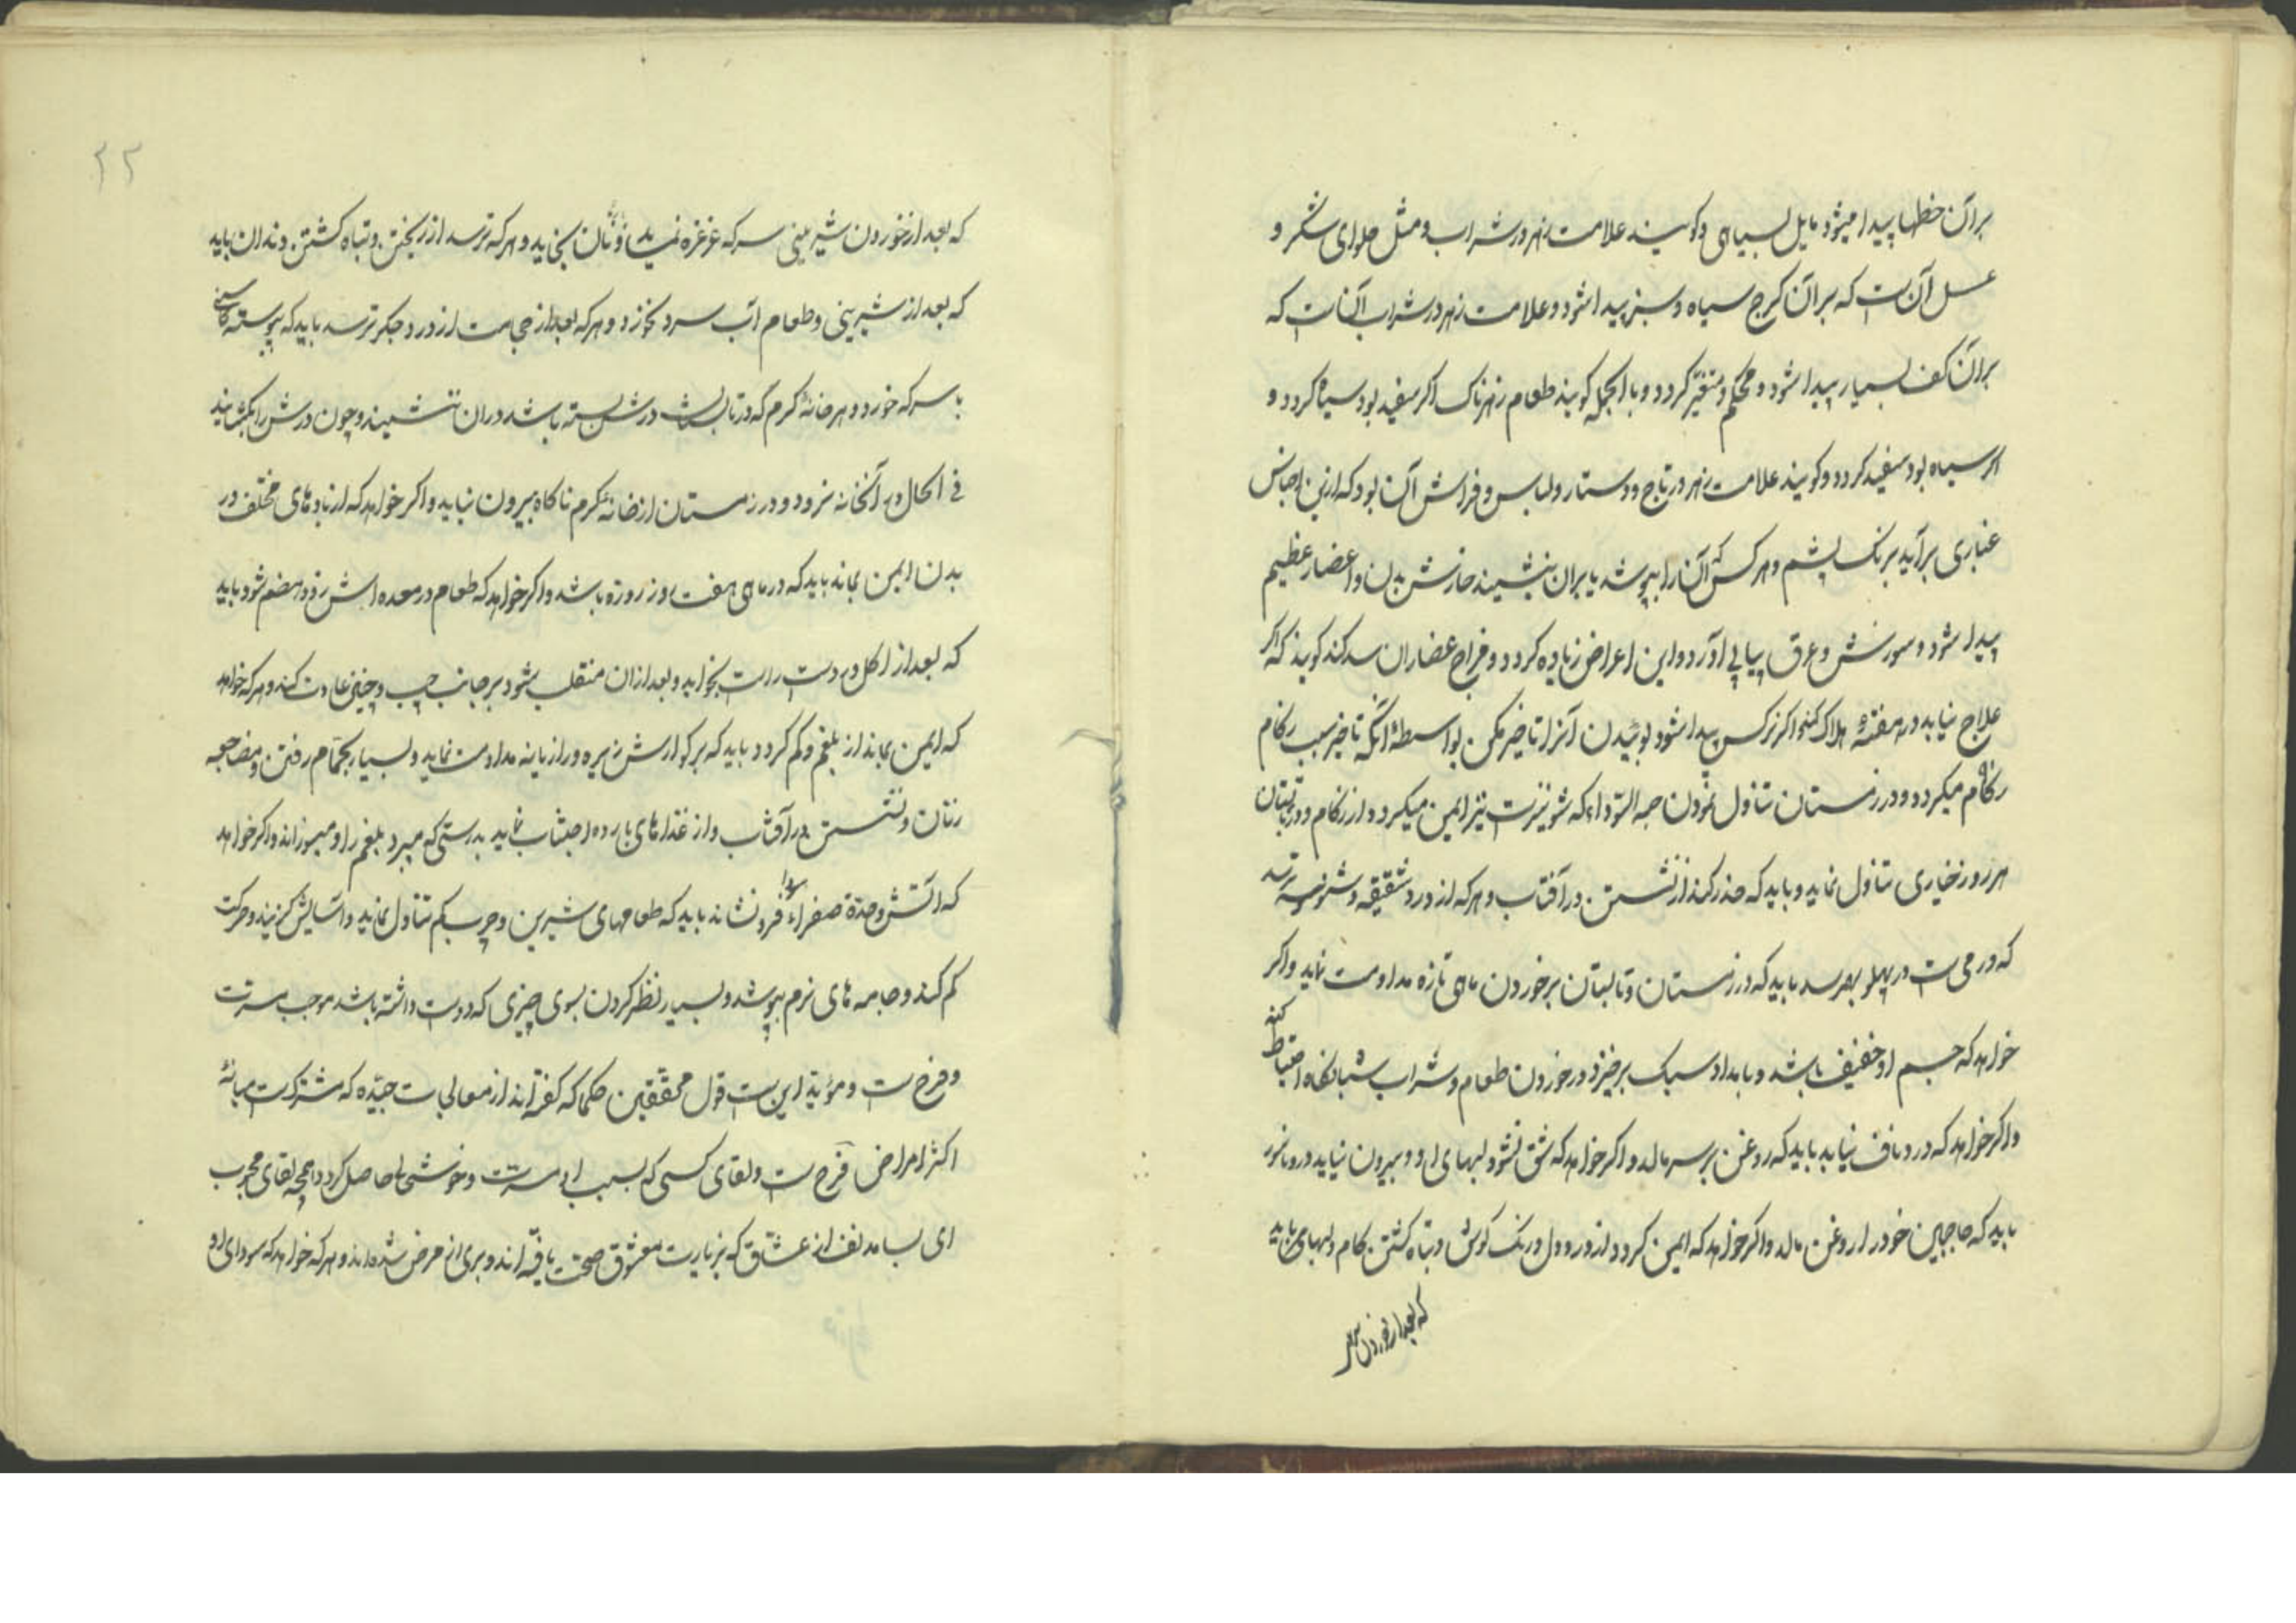 بران خطها پیدا میشود مایل بسیاهی و کویند علامت زهر در شراب و مثل حلوای شکر و
عسل آن ست که بران کرج سیاه و سبز پیدا شود و علامت زهر در شراب آن ست که
بران کف بسیار پیدا شود و محکم و متغیّر کردد و بالجمله کویند طعام زهرناک اکر سفید بود سیاه کردد و
اکر سیاه بود سفید کردد و کویند علامت زهر در تاج و دستار و لباس و فراش آن بود که ازین اجناس
غباری برآید برنک پشم و هر کس که آن را بپوشد یا بران بنشیند خارش بدن و اعضار عظیم
پیدا شود و سوزش و عرق پیاپی آورد و این اعراض زیاده کردد و فراح عضاران سد کند کویند که اکر
علاج نیابد در هفته هلاک کند اکر نرکس پیدا شود بوئیدن آنرا تاخیر مکن بواسطهٔ آنکه تاخیر سبب زکام
زکام میکردد و در زمستان تناول نمودن حبه السّوداء که شونیزست نیز ایمن میکردد از زکام و در تابستان
هر روز خیاری تناول نماید و باید که حذر کند از نشستن در آفتاب و هر که از درد شقیقه و شوصه ترسد
که ورمی ست در پهلو بهرسد باید که در زمستان و تابستان بر خوردن ماهی تازه مداومت نماید و اکر
خواهد که جسم او خفیف باشد و بامداد سبک برخیزد در خوردن طعام و شراب شبانکاه احتیاط کند
و اکر خواهد که درد ناف نیابد باید که روغن بر سر مالد و اکر خواهد که شق نشود لبهای او و بیرون نیاید درو ناسور
باید که حاجبین خود را روغن مالد و اکر خواهد که ایمن کردد از درد و ورنک کوش و تباه کشتن کام و لبهای باید
که بعد از خوردن شیر
۲۲
که بعد از خوردن شیرینی سرکه غرغره نماید و نان بخاید و هر که ترسد از ریختن و تباه کشتن دندان باید
که بعد از شیرینی و طعام آب سرد نخورد و هر که بعد از حجامت از درد جکر ترسد باید که پیوسته کاسنی
با سرکه خورد و هر خانهٔ کرم که در تابستان درش بسته باشد در ان ننشیند و چون درش را بکشایند
فی الحال در آنخانه نرود و در زمستان از خانهٔ کرم ناکاه بیرون نیاید و اکر خواهد که از بادهای مختلف در
بدن ایمن بماند باید که در ماهی هفت روز روزه باشد و اکر خواهد که طعام در معده اش زود هضم شود باید
که بعد از اکل بر دست راست بخوابد و بعد از ان منقلب شود بر جانب چپ و چنین عادت کند و هر که خواهد
که ایمن بماند از بلغم و کم کردد باید که بر کوارش زیره و رازیانه مداومت نماید و بسیار بحمّام رفتن و مضاجعه
زنان و نشستن در آفتاب و از غذاهای بارده اجتناب نماید بدرستی که میبرد بلغم را و میسوزاند و اکر خواهد
که آتش و حدّة صفراء سودا فرونشاند باید که طعامهای شیرین و چرب کم تناول نماید و آسایش کزیند و حرکت
کم کند و جامه های نرم بپوشد و بسیار نظر کردن بسوی چیزی که دوست داشته باشد موجب مسرّت
و فرح ست و مؤید این ست قول محققین حکما که کفته اند از معالجات جیّده که مشترک ست میانهٔ
اکثر امراض فرح ست و لقای کسی که بسبب او مسرّت و خوشی ها حاصل کردد همچو لقای محبوب
ای بسا مدنف از عشّاق که بزیارت معشوق صحت یافته اند و بری از مرض شده اند و هر که خواهد که سودای او